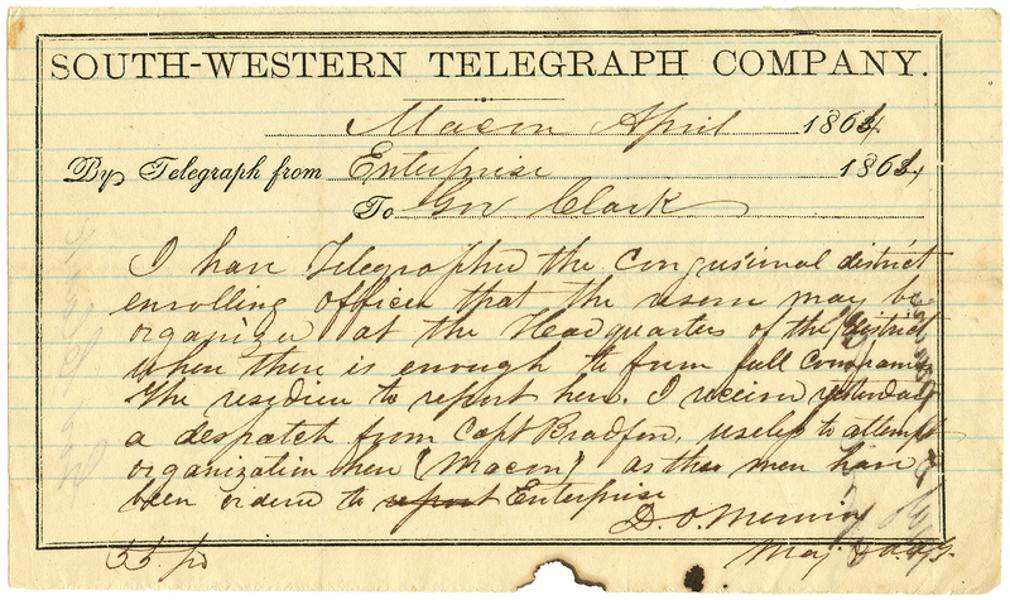 SOUTH-WESTERN TELEGRAPH COMPANY.
Macon April 1864
By Telegraph from Enterprise 1864
To Gov Clark
I have Telegraphed the Congressional district
enrolling officer that the reserve may be
organized at the Headquarters of the district
when there is enough to form full companies
The residue to report here. I received yesterday
a despatch from Capt Bradford, useless to attempt
organization here (Macon) as the men have
been ordered to report Enterprise
D. O. Merwin
Maj & A.A.G.
55 pd